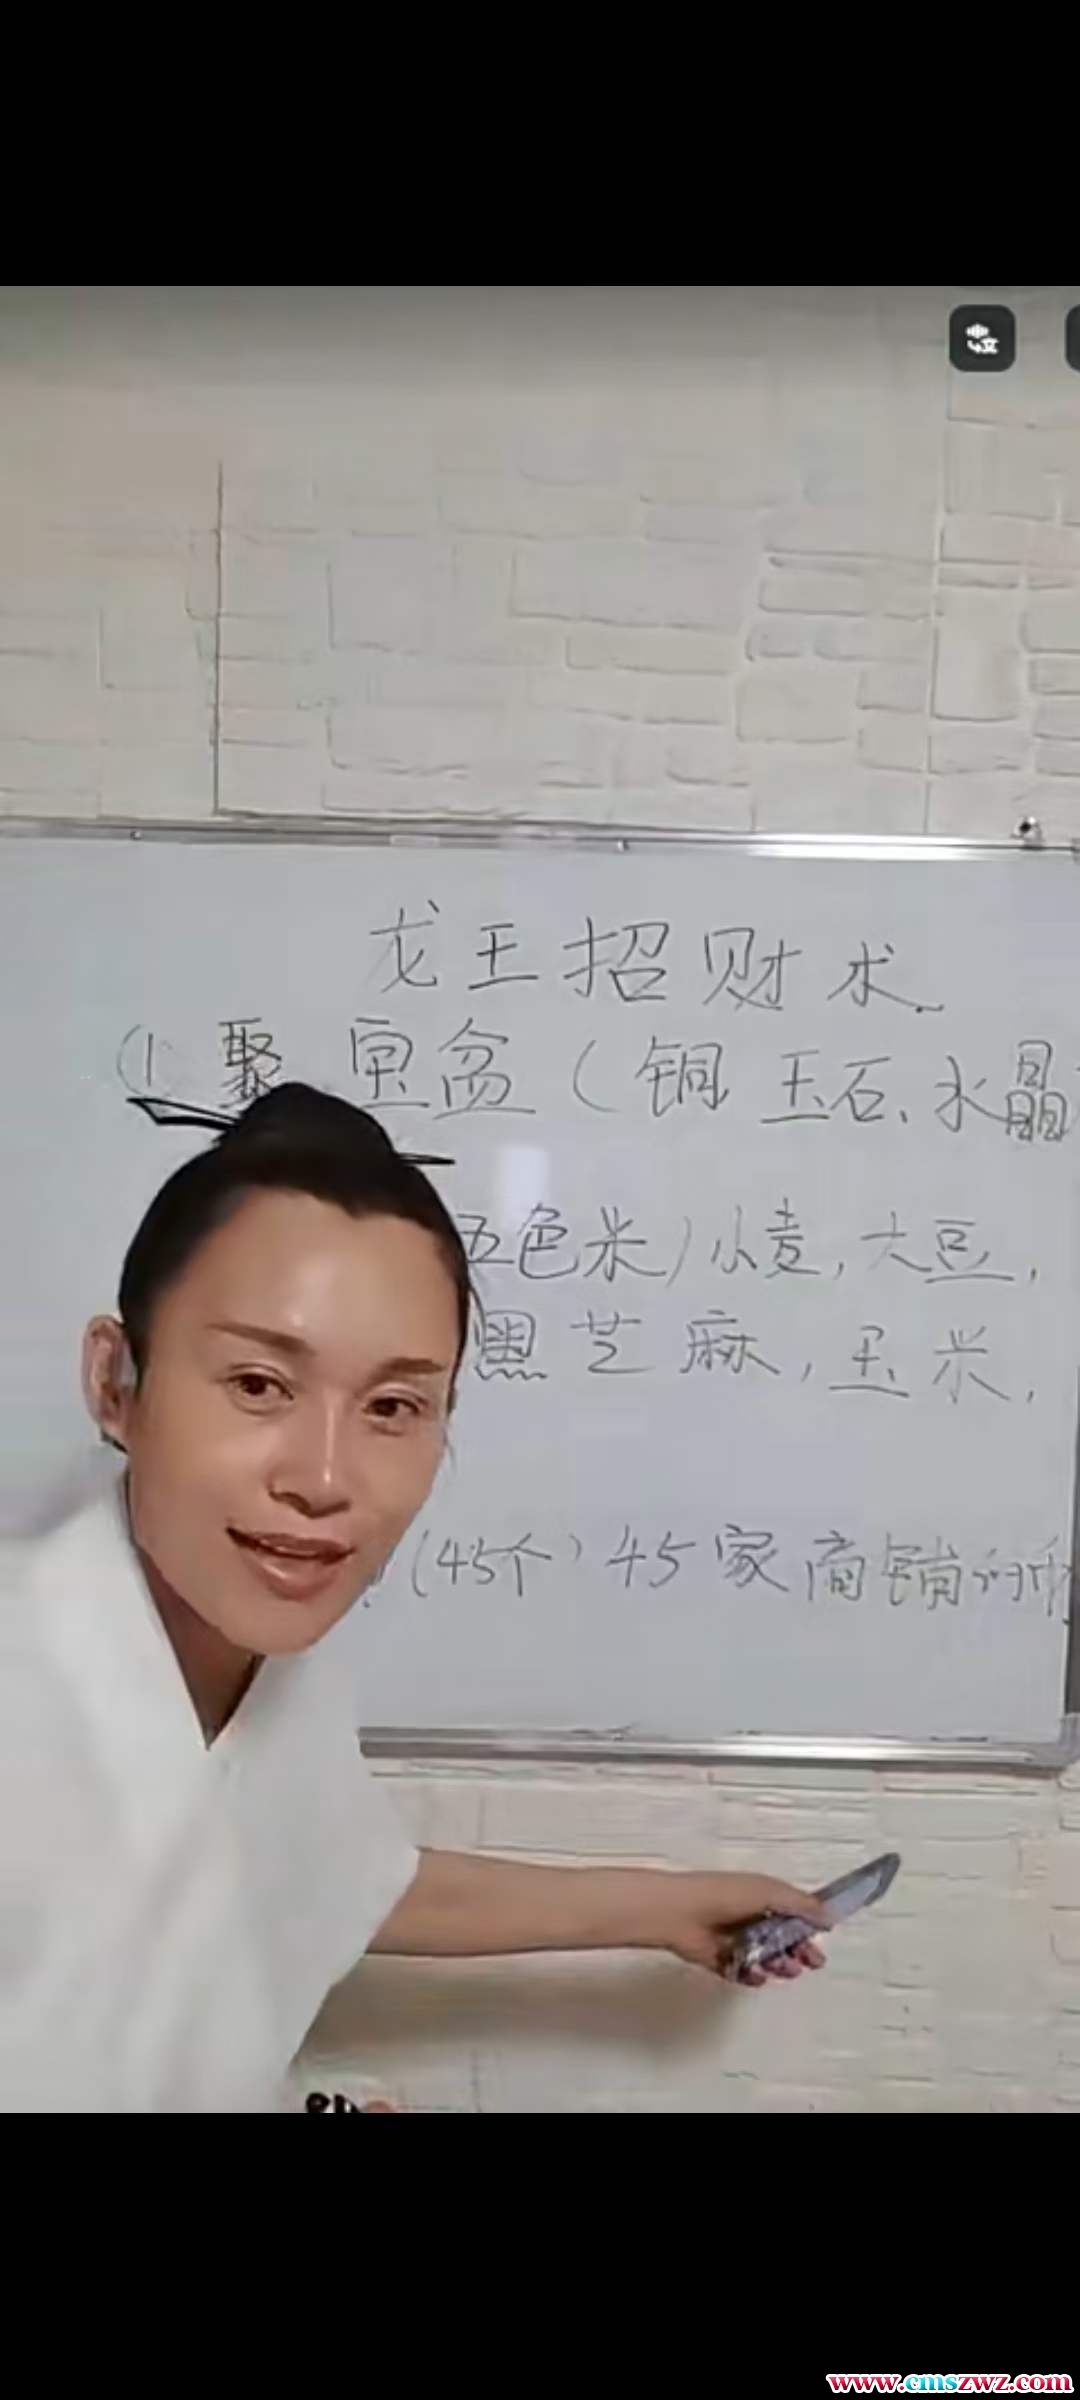 龙王招财术.
(1 聚宝盆(铜 玉石、水晶
五色米)小麦,大豆,
黑芝麻,玉米,
(45个)45家商铺的
www.cmszwz.com